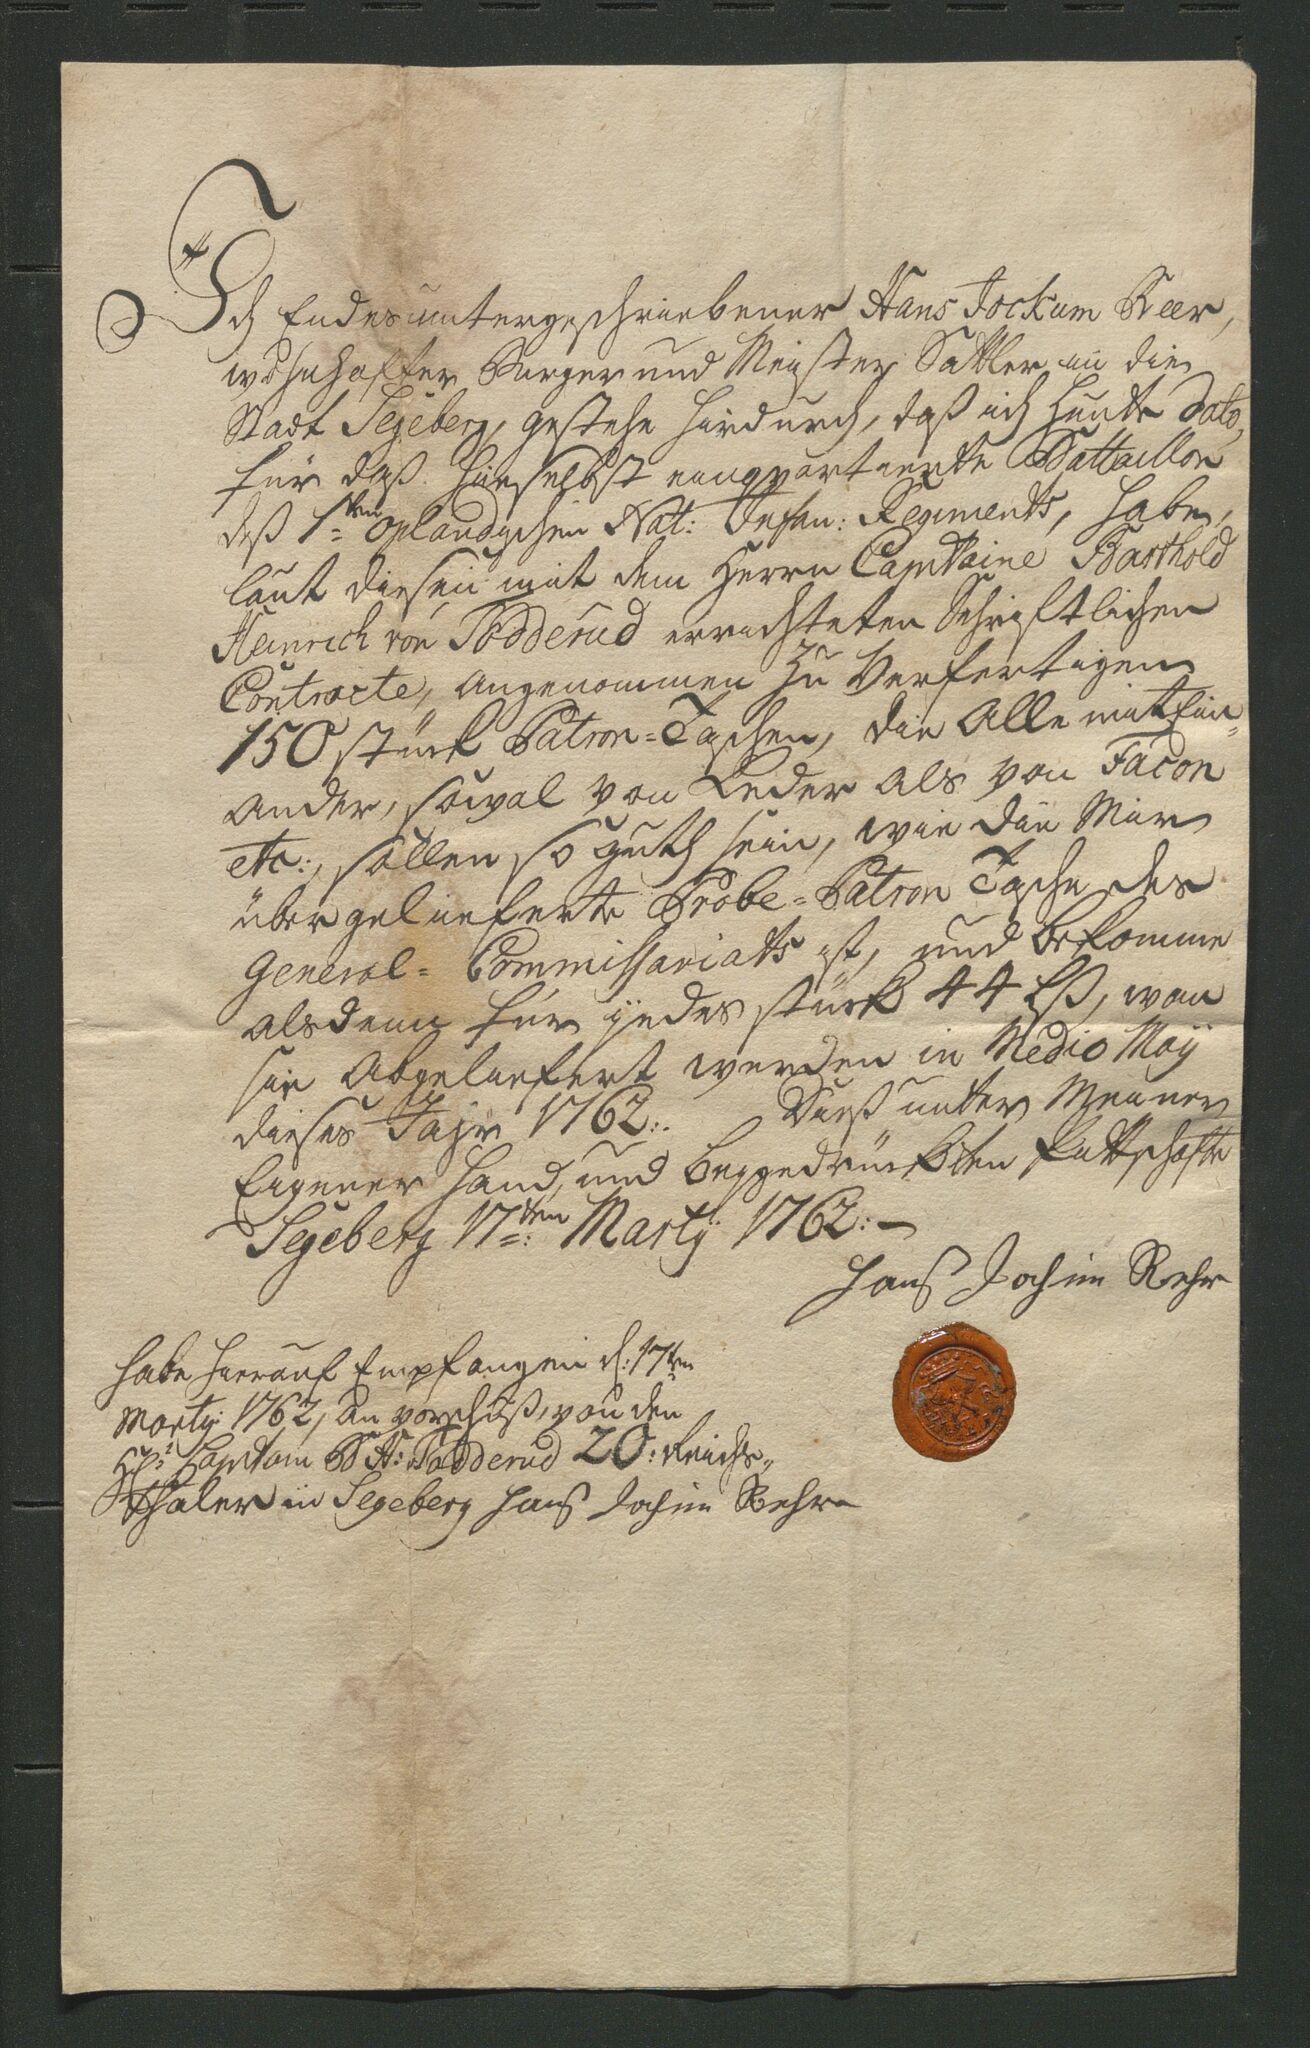 Ich Endesuntergeschriebener Hans Jockum Reer,
wohnhaffter Burger und Meister Sattler in die
Stadt Segeberg, gestehe hirdurch, daß ich Heute Dato,
für daß hieselbst einqvartierte Battaillon
deß 1sten Oplandischen Nat: Infan: Regiments, habe,
laut diesen mit dem Herrn Capitaine Barthold
Heinrich von Bødderud errichteten Schriftlichen
Contracte, Angenommen Zu Verfertigen
150 stück Patron-Taschen, die Alle mit Ein-
ander, sowol von Leder als von Facon
etc:, sollen so guth sein, wie die Mir
übergelieferte Probe-Patron Tasche des
General-Commissariats ist, und bekomme
alsdenn für jedes stück 44 Lß, wan
sie Abgeliefert werden in Medio Maij
dieses Jahr 1762:. Dieß unter Meiner
Eigener Hand, und beygedrückten Pettschafte
Segeberg 17ten: Martij 1762:—
Hanß Jochim Rehr
habe hierauf Empfangen d: 17ten
Martij 1762, an vorschuß, von den
Hr: Capitain B H: Bødderud 20: Reichs-
Thaler in Segeberg Hanß Jochim Rehr